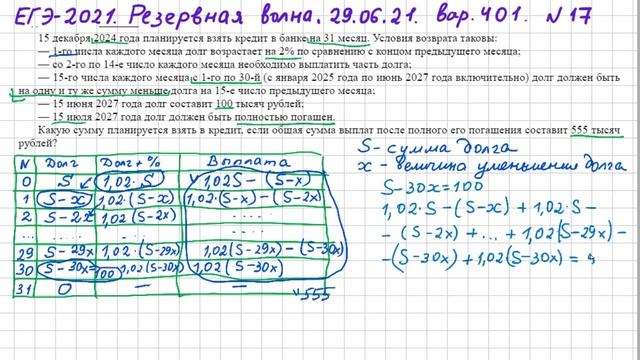 ЕГЭ-2021. Резервная волна. 29.06.21. вар. 401. №17
15 декабря 2024 года планируется взять кредит в банке на 31 месяц. Условия возврата таковы:
— 1-го числа каждого месяца долг возрастает на 2% по сравнению с концом предыдущего месяца;
— со 2-го по 14-е число каждого месяца необходимо выплатить часть долга;
— 15-го числа каждого месяца с 1-го по 30-й (с января 2025 года по июнь 2027 года включительно) долг должен быть
на одну и ту же сумму меньше долга на 15-е число предыдущего месяца;
— 15 июня 2027 года долг составит 100 тысяч рублей;
— 15 июля 2027 года долг должен быть полностью погашен.
Какую сумму планируется взять в кредит, если общая сумма выплат после полного его погашения составит 555 тысяч
рублей?
N Долг Долг+% Выплата
0 S 1,02·S 1,02S-(S-x)
1 S-x 1,02·(S-x) 1,02·(S-x)-(S-2x)
2 S-2x 1,02(S-2x) ....
... ... ... ....
29 S-29x 1,02·(S-29x) 1,02(S-29x)-(S-30x)
30 S-30x=100 1,02(S-30x) 1,02(S-30x)
31 0 — —
555
S-сумма долга
x-величина уменьшения долга
S-30x=100
1,02·S-(S-x)+1,02·S-
-(S-2x)+...+1,02(S-29x)-
-(S-30x)+1,02(S-30x)=